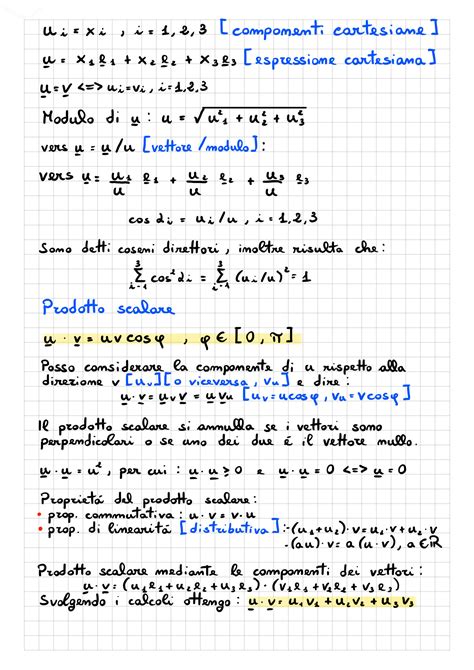 u i = x i , i = 1, 2, 3 [componenti cartesiane]
u = x1 e1 + x2 e2 + x3 e3 [espressione cartesiana]
u = v <=> ui = vi, i = 1,2,3
Modulo di u : u = √u²1 + u²2 + u²3
vers u = u/u [vettore/modulo]:
vers u = u1/u e1 + u2/u e2 + u3/u e3
cos αi = ui/u , i = 1,2,3
Sono detti coseni direttori, inoltre risulta che:
3∑i=1 cos²αi = 3∑i=1 (ui/u)² = 1
Prodotto scalare
u · v = uv cosφ , φ ∈ [0, π]
Posso considerare la componente di u rispetto alla
direzione v [uv][o viceversa, vu] e dire:
u · v = uv v = u vu [uv = u cosφ, vu = v cosφ]
Il prodotto scalare si annulla se i vettori sono
perpendicolari o se uno dei due é il vettore nullo.
u · u = u², per cui : u · u ≥ 0 e u · u = 0 <=> u = 0
Proprietá del prodotto scalare:
• prop. commutativa : u · v = v · u
• prop. di linearitá [distributiva] : - (u1+u2) · v = u1 · v + u2 · v
- (au) · v = a (u · v), a ∈ ℝ
Prodotto scalare mediante le componenti dei vettori :
u · v = (u1e1 + u2e2 + u3e3) · (v1e1 + v2e2 + v3e3)
Svolgendo i calcoli ottengo : u · v = u1v1 + u2v2 + u3v3